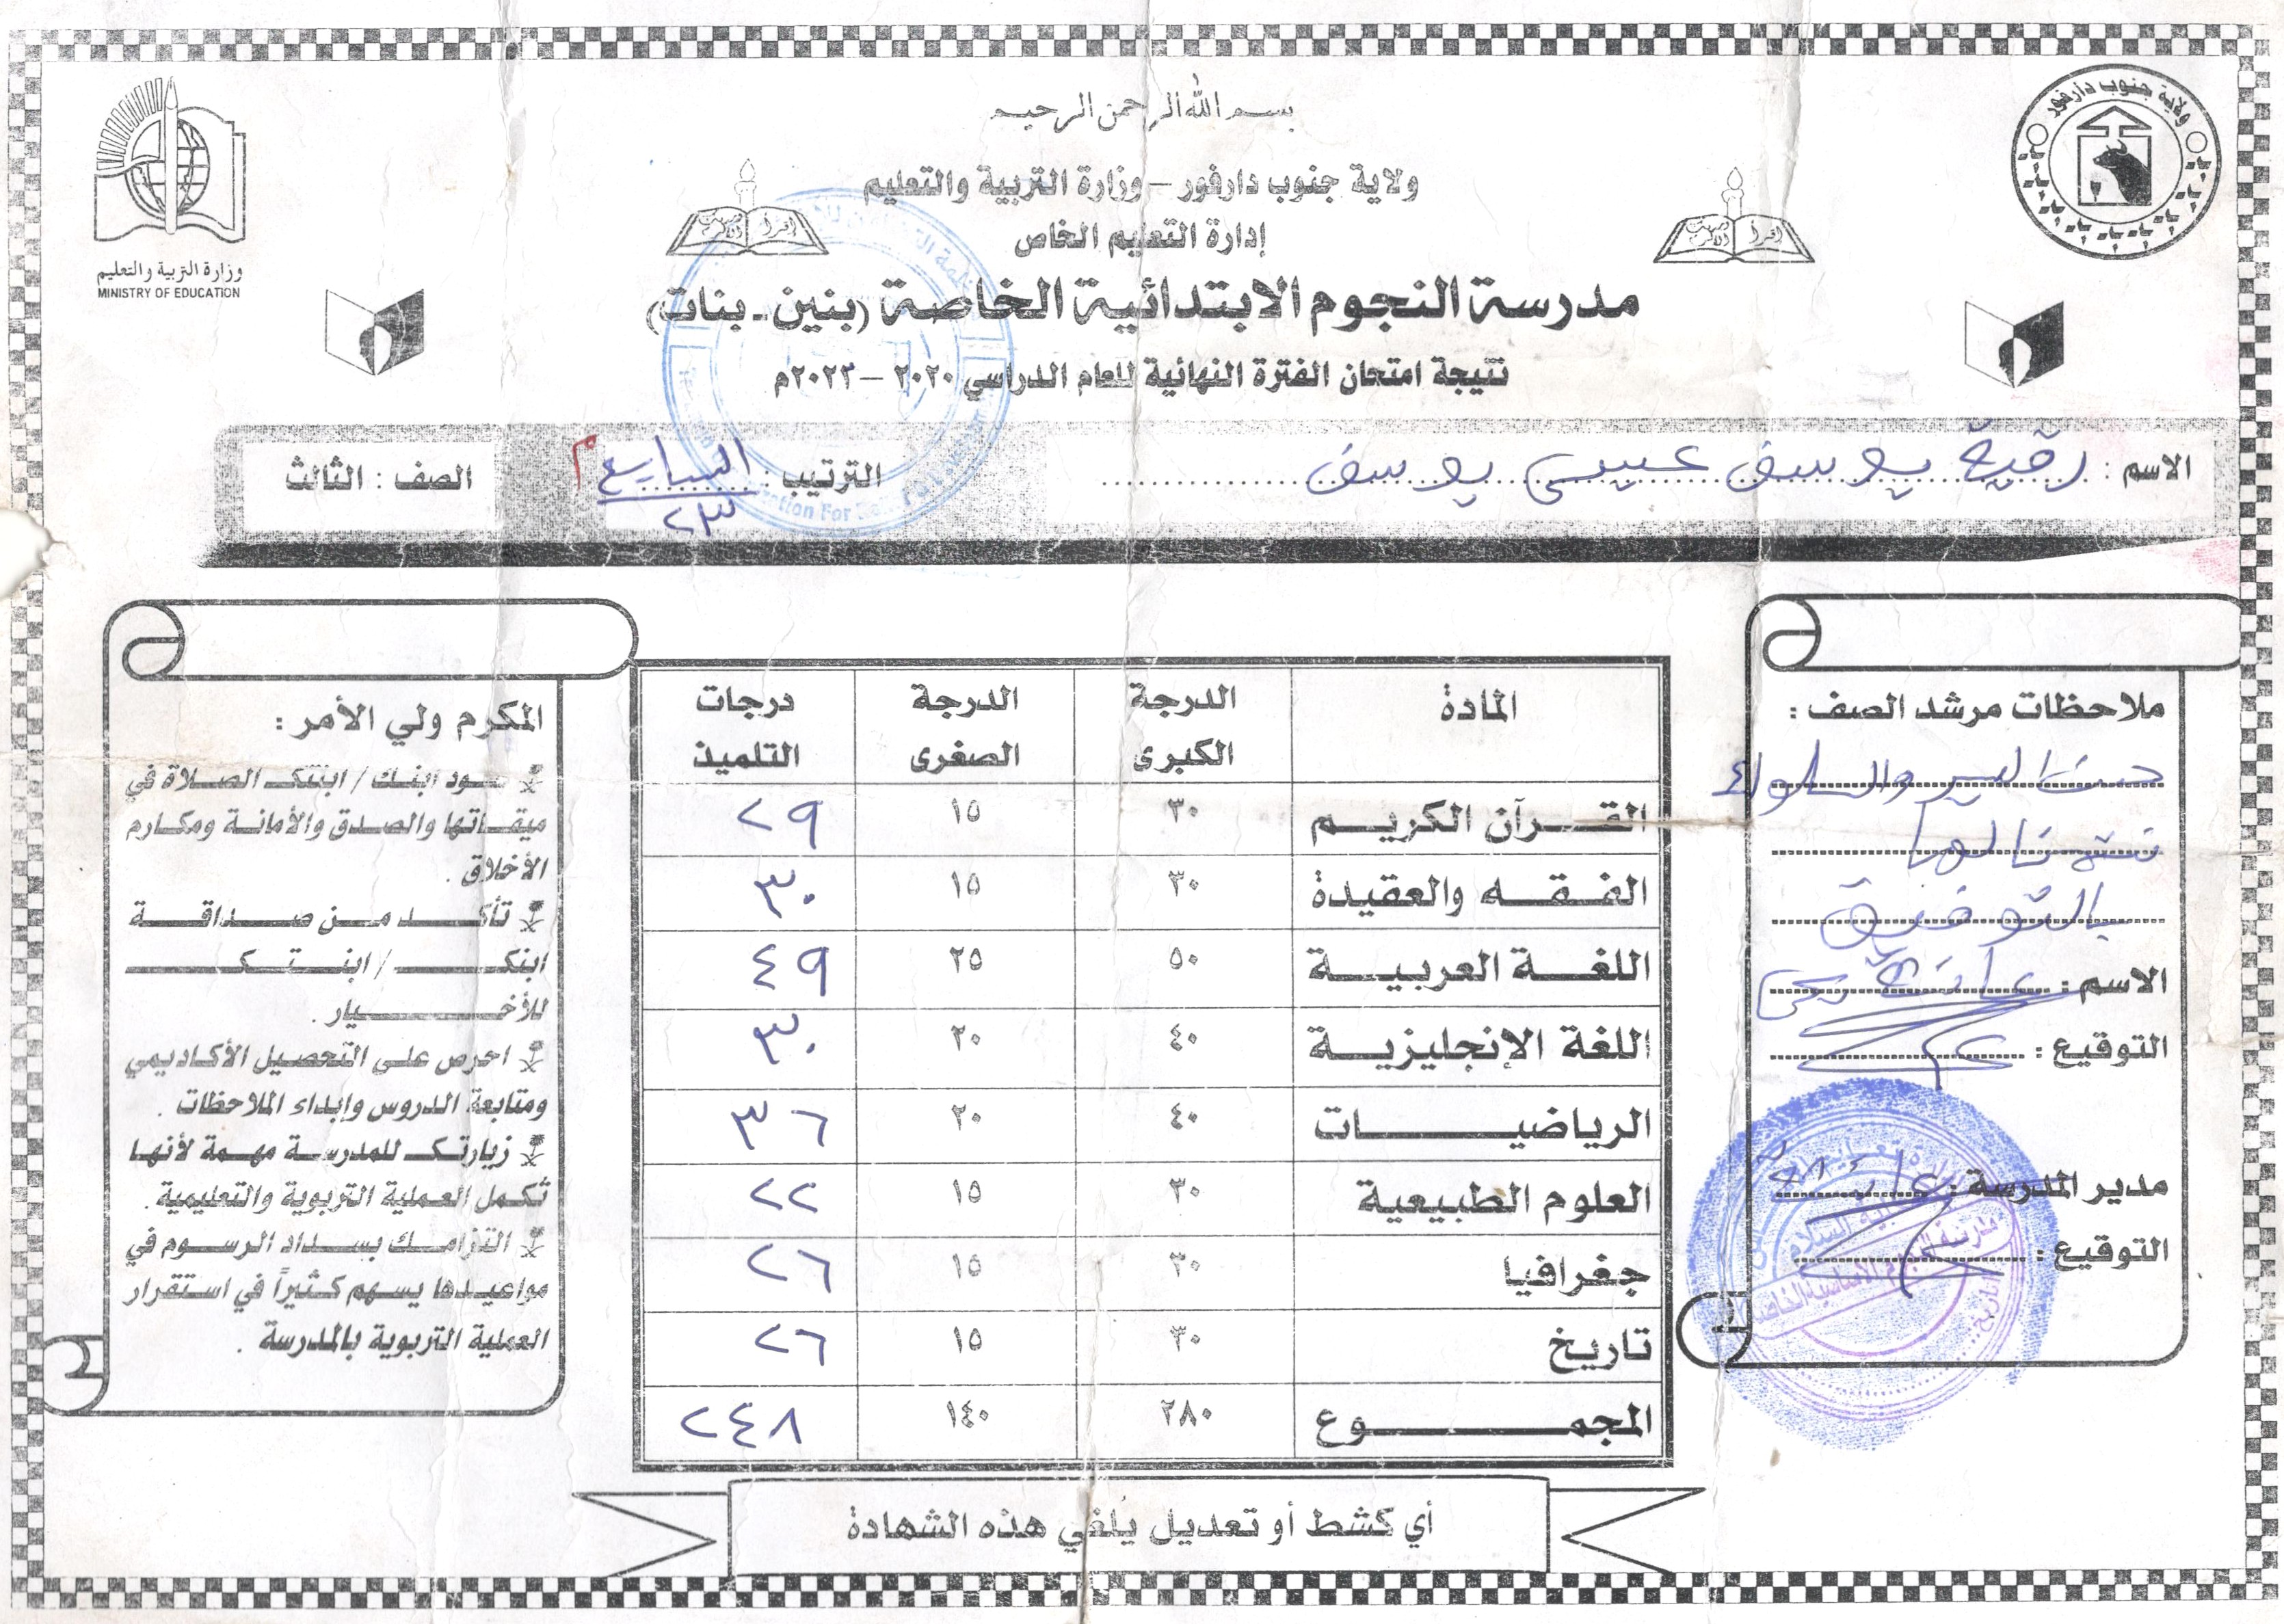 بسم الله الرحمن الرحيم
ولاية جنوب دارفور
ولاية جنوب دارفور – وزارة التربية والتعليم
إدارة التعليم الخاص
وزارة التربية والتعليم
MINISTRY OF EDUCATION
مدرسة النجوم الابتدائية الخاصة (بنين - بنات)
نتيجة امتحان الفترة النهائية للعام الدراسي ٢٠٢٠ – ٢٠٢٣م
الاسم : رقية يوسف عيسى يوسف
الترتيب : السابع م
٢٣
الصف : الثالث
ملاحظات مرشد الصف :
حسنة السير والسلوك
نتمنا لها
بالتوفيق
الاسم :
التوقيع :
مدير المدرسة :
التوقيع :
المادة الدرجة الكبرى الدرجة الصغرى درجات التلميذ
القرآن الكريم ٣٠ ١٥ ٢٩
الفقه والعقيدة ٣٠ ١٥ ٣٠
اللغة العربية ٥٠ ٢٥ ٤٩
اللغة الإنجليزية ٤٠ ٢٠ ٣٠
الرياضيات ٤٠ ٢٠ ٣٦
العلوم الطبيعية ٣٠ ١٥ ٢٢
جغرافيا ٣٠ ١٥ ٢٦
تاريخ ٣٠ ١٥ ٢٦
المجموع ٢٨٠ ١٤٠ ٢٤٨
المكرم ولي الأمر :
عود ابنك / ابنتك الصلاة في
ميقاتها والصدق والأمانة ومكارم
الأخلاق .
تأكد من صداقة
ابنك / ابنتك
للأخيار .
احرص على التحصيل الأكاديمي
ومتابعة الدروس وإبداء الملاحظات .
زيارتك للمدرسة مهمة لأنها
تكمل العملية التربوية والتعليمية .
التزامك بسداد الرسوم في
مواعيدها يسهم كثيراً في استقرار
العملية التربوية بالمدرسة .
أي كشط أو تعديل يُلغي هذه الشهادة